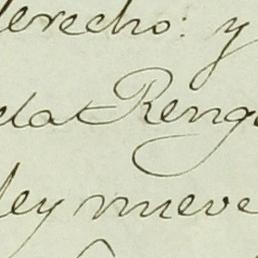 derecho: y
dat Reng
ley nueve